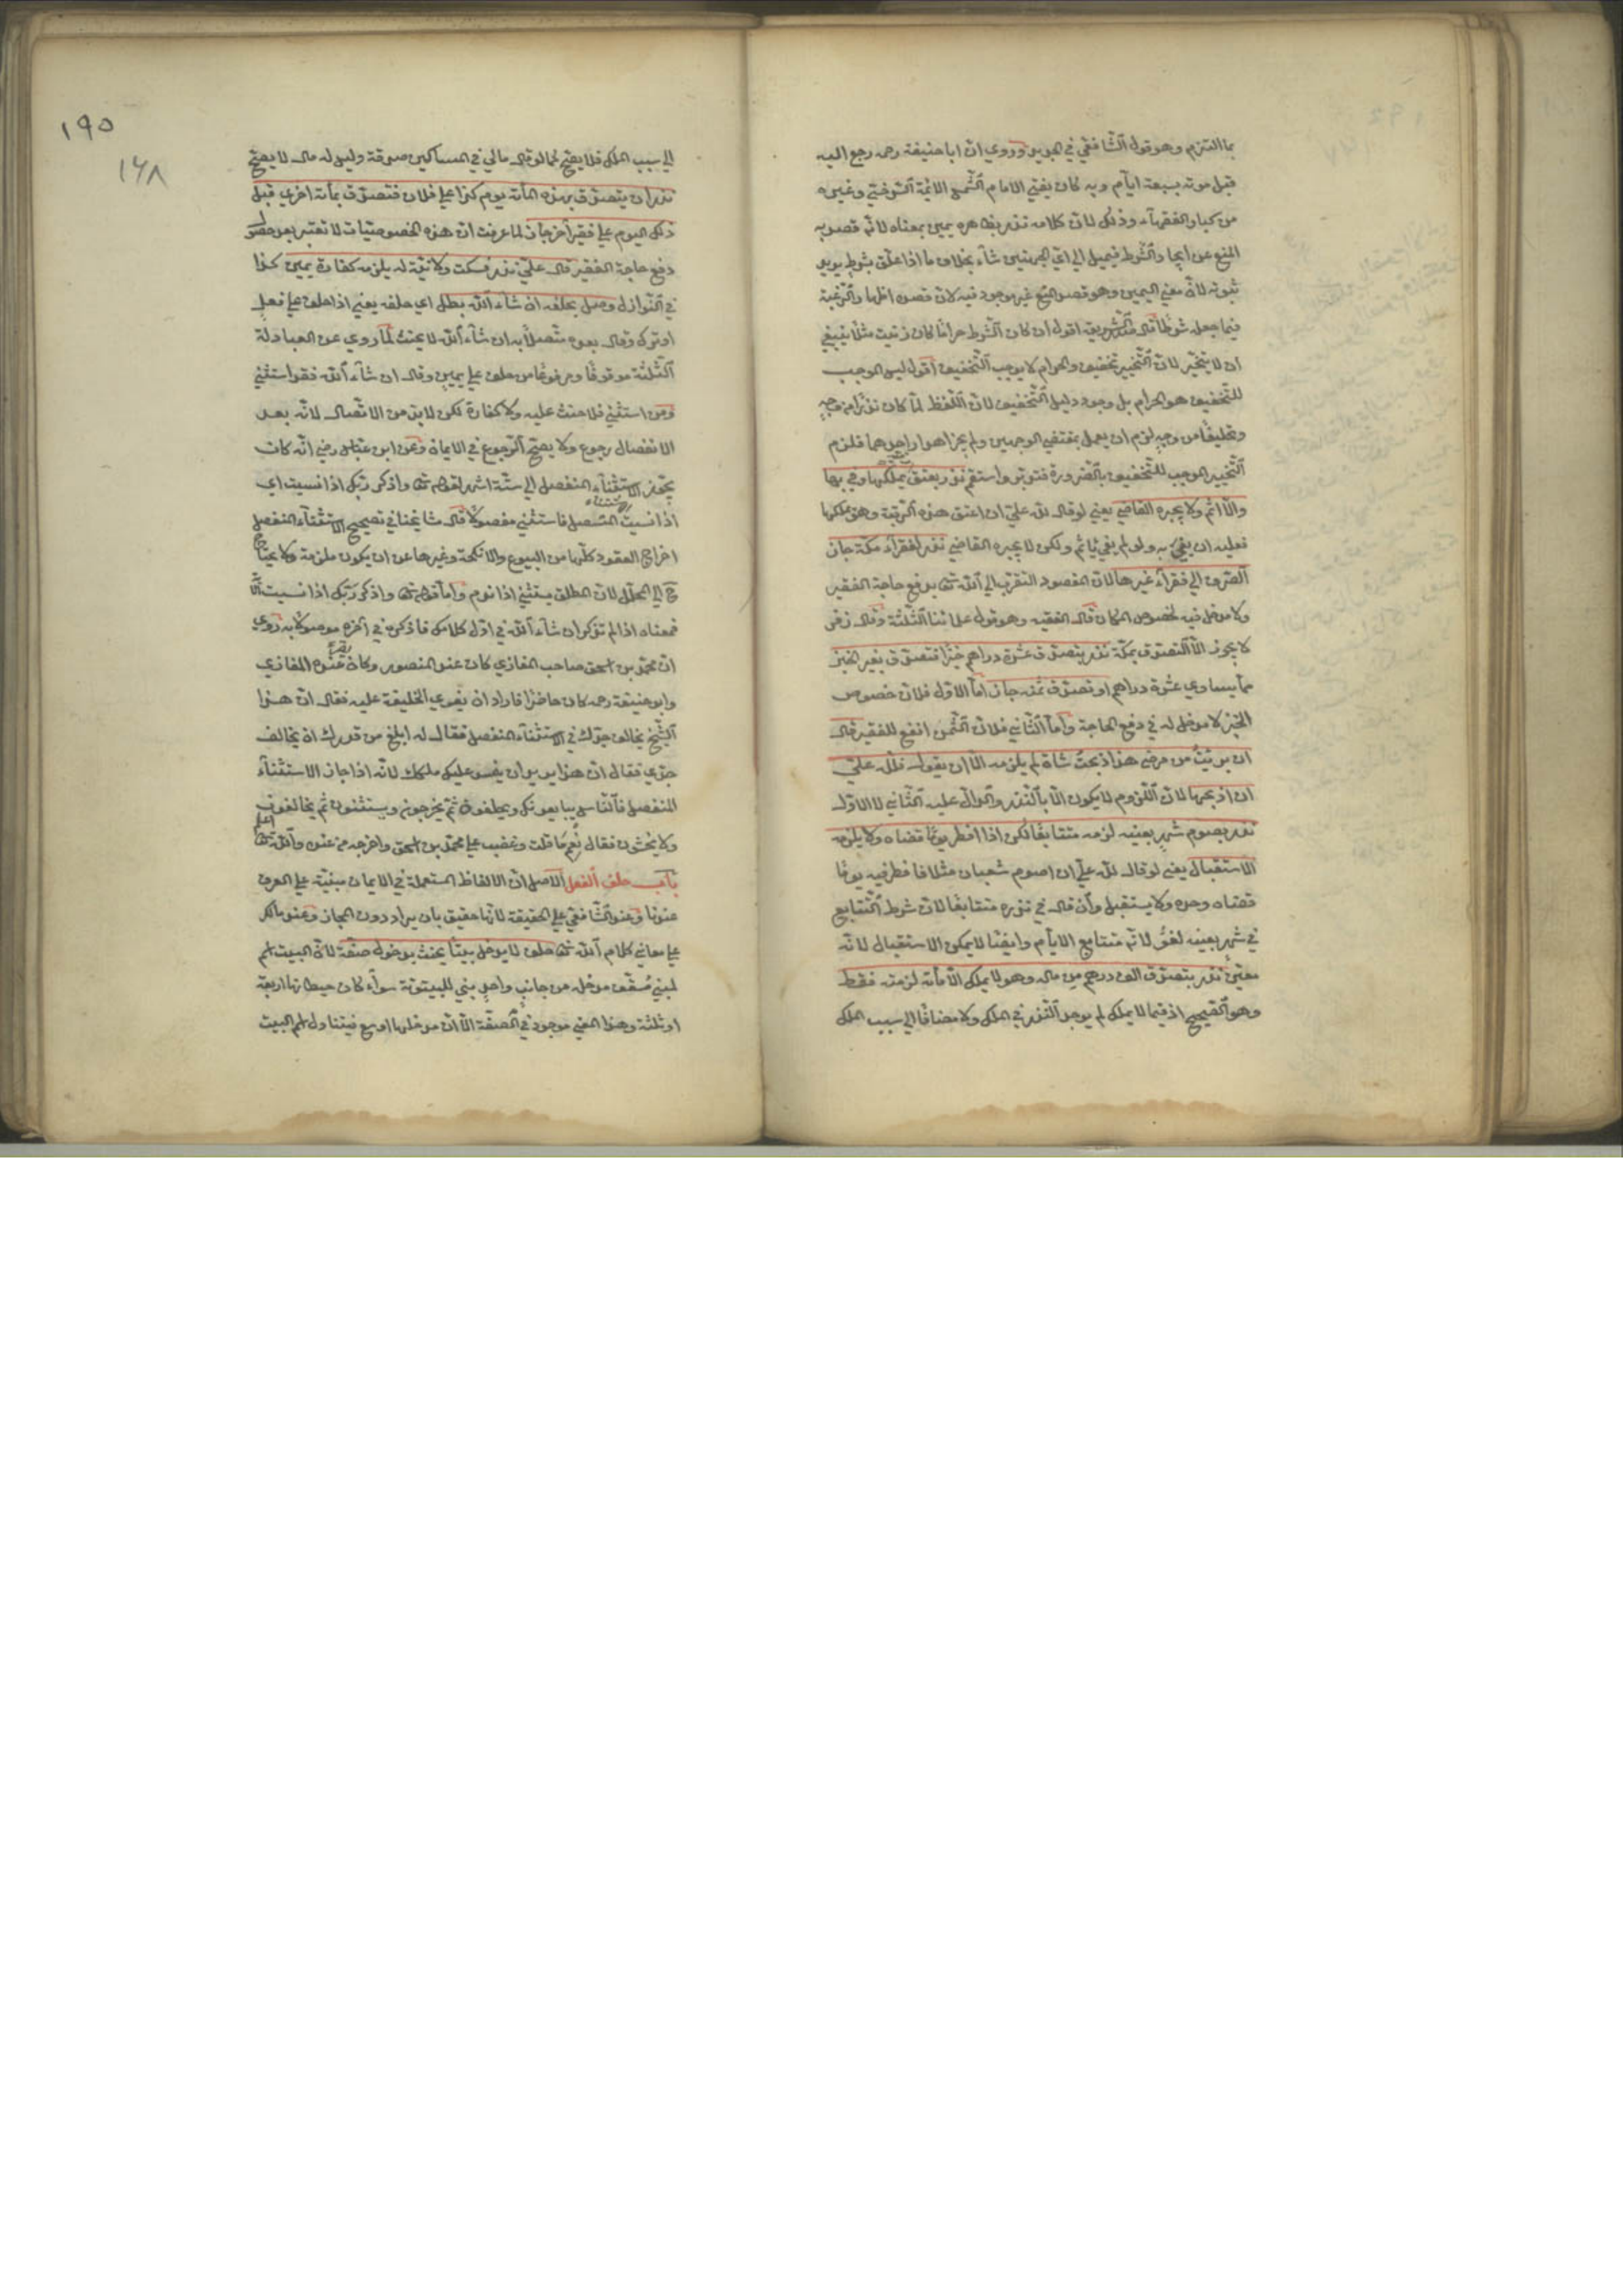 بما التزم وهو قول الشافعي في الجديد وروي ان ابا حنيفة رحمه رجع اليه
قبل موته بسبعة ايام وبه كان يفتي الامام الشمس الائمة السرخسي وغيره
من كبار الفقهاء وذلك لان كلامه نذر بظاهره يمين بمعناه لانه قصد به
المنع عن ايجاد الشرط فيميل الى اي الجهتين شاء بخلاف ما اذا علق بشرط يريد
ثبوته لان معنى اليمين وهو قصد المنع غير موجود فيه لان قصده اظهار الرغبة
فيما جعله شرطا قال الشريعة اقول ان كان الشرط حراما كان زنيت مثلا ينبغي
ان لا يتخير لان التخيير تخفيف والحرام لا يوجب التخفيف اقول ليس الموجب
للتخفيف هو الحرام بل وجود دليل التخفيف لان اللفظ لما كان نذرا من وجه
من وجه لزم ان يعمل بمقتضى الوجهين ولم يجز اهدار احدهما فلزم
التخيير الموجب للتخفيف بالضرورة فتدبر واستقم نذر بعتق رقبة يملكها وفى بها
والا اثم ولا يجبره القاضي يعني لو قال لله علي ان اعتق هذه الرقبة وهو يملكها
فعليه ان يفي به ولو لم يفي يأثم ولكن لا يجبره القاضي نذر لفقراء مكة جاز
الصرف الى فقراء غيرها لان المقصود التقرب الى الله تعالى بدفع حاجة الفقير
ولا مدخل فيه لخصوص المكان قال الفقيه وهو قول علمائنا الثلثة وقال زفر
لا يجوز الا التصدق بمكة نذر بتصدق عشرة دراهم خبزا فتصدق بغير الخبز
مما يساوي عشرة دراهم او تصدق ثمنه جاز اما الاول فلان خصوص
الخبز لا مدخل له في دفع الحاجة واما الثاني فلان الثمن انفع للفقير قال
ان برئت من مرضي هذا ذبحت شاة لم يلزمه الا ان يقول فلله علي
ان اذبحها لان اللزوم لا يكون الا بالنذر والدال عليه الثاني لا الاول
نذر بصوم شهر بعينه لزمه متتابعا لكن اذا افطر يوما قضاه ولا يلزمه
الاستقبال يعني لو قال لله علي ان اصوم شعبان مثلا فافطر فيه يوما
قضاه وحده ولا يستقبل وان قال في نذره متتابعا لان شرط التتابع
في شهر بعينه لغو لانه متتابع الايام وايضا لا يمكن الاستقبال لانه
معين نذر بتصدق الف درهم من ماله وهو لا يملك الا مائة لزمته فقط
وهو الصحيح اذ فيما لا يملك لم يوجد النذر في الملك ولا مضافا الى سبب الملك
١٩٥
١٦٨
الى سبب الملك فلا يصح كما لو قال مالي في المساكين صدقة وليس له مال لا يصح
نذر ان يتصدق بهذه المائة يوم كذا على فلان فتصدق بمائة اخرى قبل
ذلك اليوم على فقير آخر جاز لما عرفت ان هذه الخصوصيات لا تعتبر بعد حصول
دفع حاجة الفقير قال علي نذر فسكت ولا نية له يلزمه كفارة يمين كذا
في النوازل وصل بحلفه ان شاء الله بطل اي حلفه يعني اذا حلف على فعل
او ترك وقال بعده متصلا به ان شاء الله لا يحنث لما روي عن العبادلة
الثلثة موقوفا ومرفوعا من حلف على يمين وقال ان شاء الله فقد استثنى
ومن استثنى فلا حنث عليه ولا كفارة لكن لا بد من الاتصال لانه بعد
الانفصال رجوع ولا يصح الرجوع في الايمان وعن ابن عباس رضي انه كان
يجوز الاستثناء المنفصل الى ستة اشهر لقوله تعالى واذكر ربك اذا نسيت اي
اذا نسيت الاستثناء المتصل فاستثني مفصولا قال مشايخنا في تصحيح الاستثناء المنفصل
اخراج العقود كلها من البيوع والانكحة وغيرها عن ان يكون ملزمة ولا يحتاج
الى المحلل لان المطلق يستثني اذا ندم واما قوله تعالى واذكر ربك اذا نسيت
فمعناه اذا لم تذكر ان شاء الله في اول كلامك فاذكره في آخره موصولا به روي
ان محمد بن اسحق صاحب المغازي كان عند المنصور وكان يقرأ عنده المغازي
وابو حنيفة رحمه كان حاضرا فاراد ان يغوي الخليفة عليه فقال ان هذا
الشيخ يخالف جدك في الاستثناء المنفصل فقال له ابلغ من قدرك ان تخالف
جدي فقال ان هذا يريد ان يفسد عليك ملكك لانه اذا جاز الاستثناء
المنفصل فالناس يبايعونك ويحلفون ثم يخرجون ويستثنون ثم يخالفون
ولا يحنثون فقال نعم ما قلت وغضب على محمد بن اسحق واخرجه من عنده والله تعالى اعلم
باب حلف الفعل الاصل ان الالفاظ المستعملة في الايمان مبنية على العرف
عندنا وعند الشافعي على الحقيقة لانها حقيق بان يراد دون المجاز وعند مالك
على معاني كلام الله تعالى حلف لا يدخل بيتا يحنث بدخول صفة لان البيت اسم
لمبني مسقف مدخله من جانب واحد بني للبيتوتة سواء كان حيطانها اربعة
او ثلثة وهذا المعنى موجود في الصفة الا ان مدخلها اوسع فيتناول اسم البيت